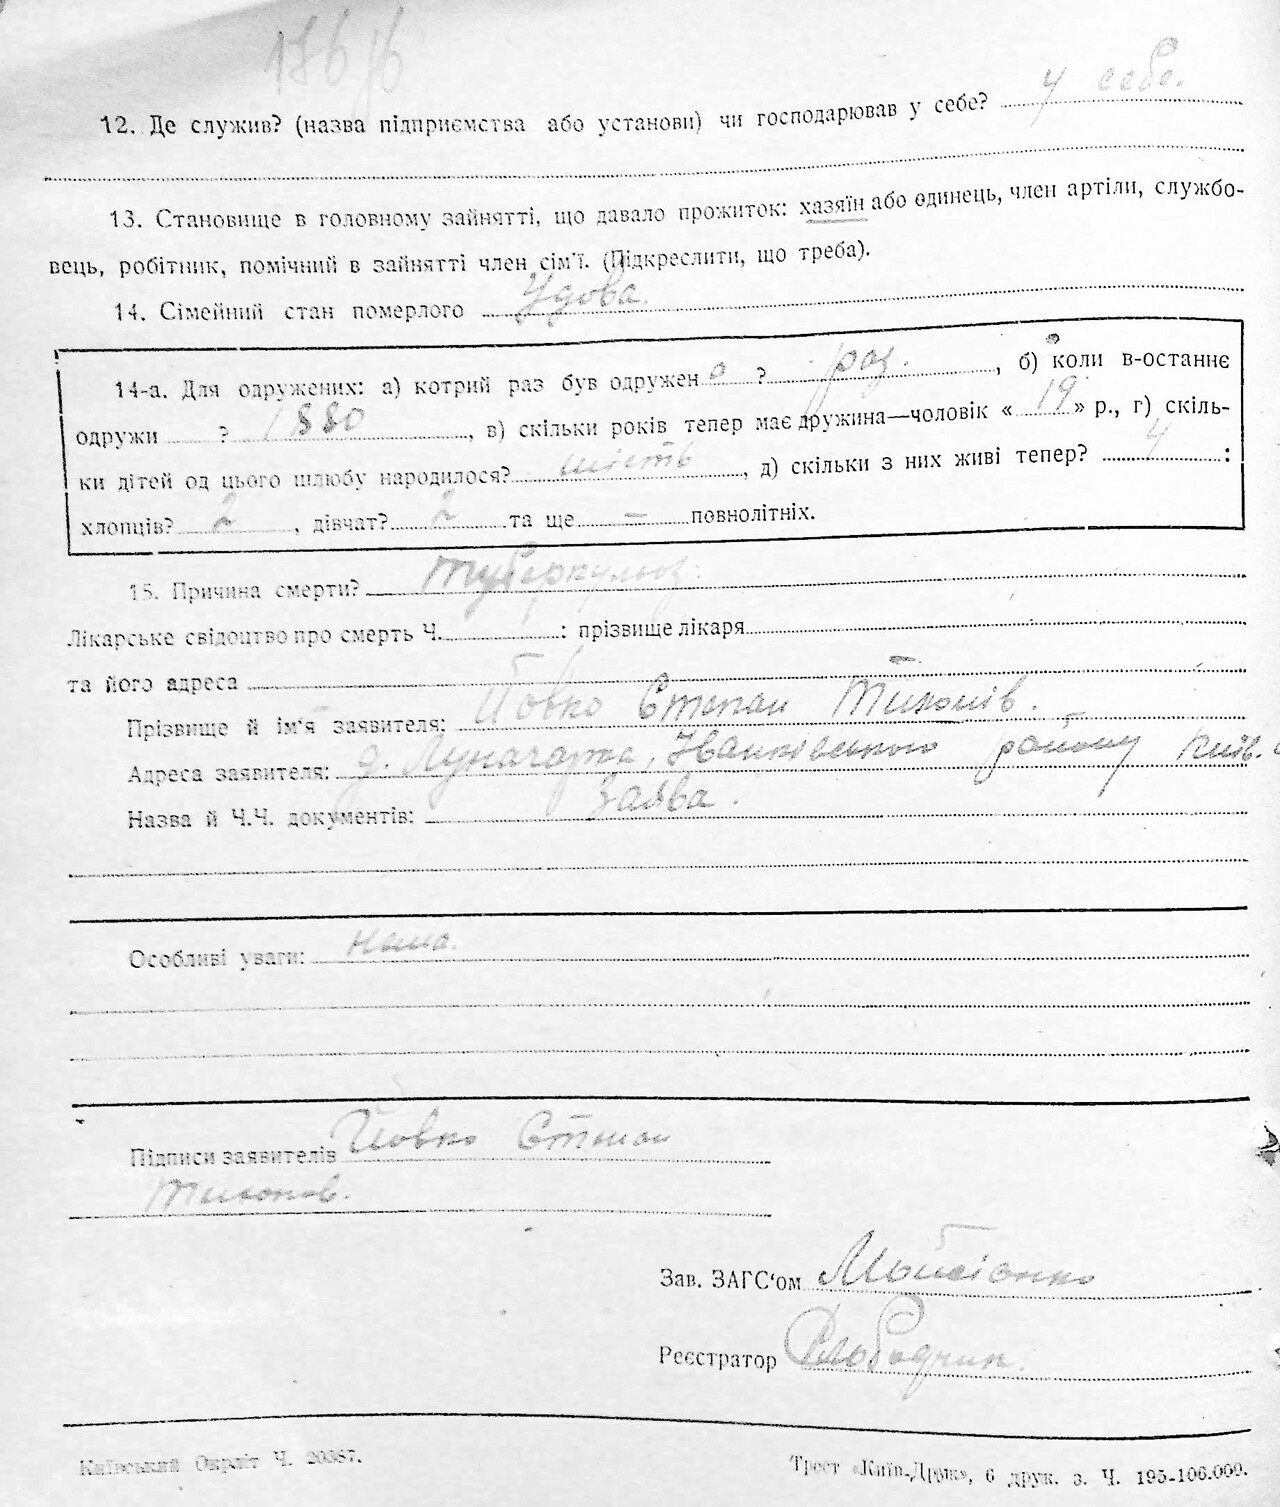 176/б
12. Де служив? (назва підприємства або установи) чи господарював у себе? у себе.
13. Становище в головному зайнятті, що давало прожиток: хазяїн або одинець, член артіли, службо-
вець, робітник, помічний в зайнятті член сім'ї. (Підкреслити, що треба).
14. Сімейний стан померлого Удова.
14-а. Для одружених: а) котрий раз був одружен о ? раз. , б) коли в-останнє
одружи ? 1880 , в) скільки років тепер має дружина—чоловік « 19 » р., г) скіль-
ки дітей од цього шлюбу народилося? шість , д) скільки з них живі тепер? 4 :
хлопців? 2 , дівчат? 2 та ще — повнолітніх.
15. Причина смерти? туберкульоз.
Лікарське свідоцтво про смерть Ч. : прізвище лікаря
та його адреса
Прізвище й ім'я заявителя: Йовко Степан Тихонів.
Адреса заявителя: д. Луначарка, Іванківського району Київ.
Назва й Ч.Ч. документів: Заява.
Особливі уваги: нема.
Підписи заявителів Йовко Степан
Тихонов.
Зав. ЗАГС'ом Мойсіенко
Реєстратор Слободчик.
Київський Окрліт Ч. 20367.
Трест «Київ-Друк», 6 друк. з. Ч. 195-106.000.